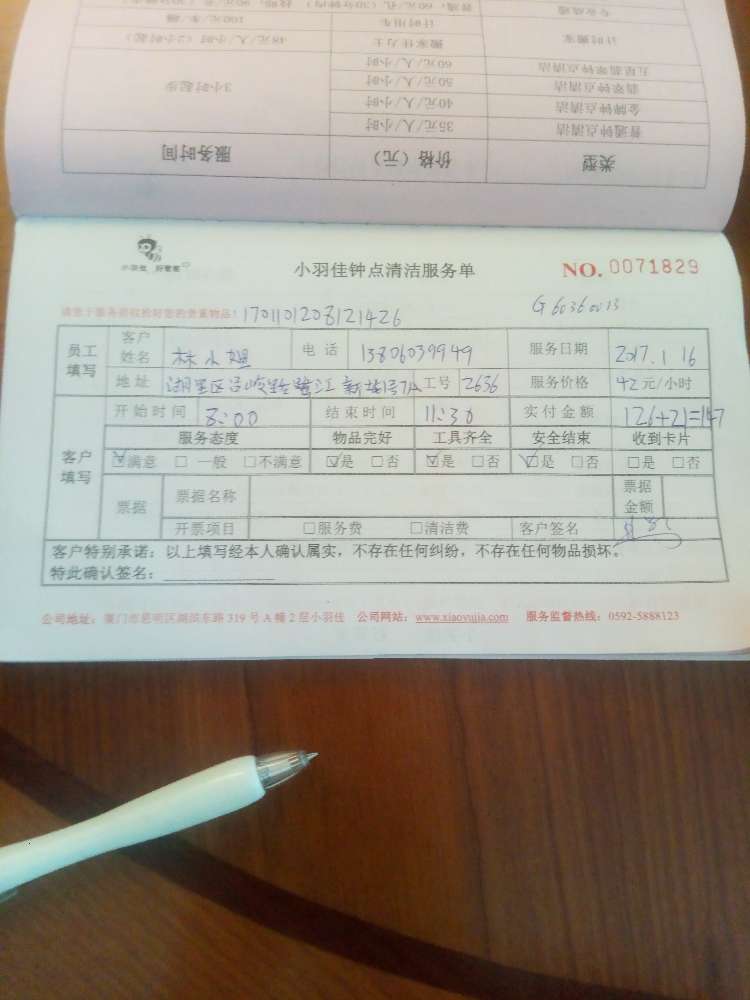 专业疏通 普通：60元/孔（30分钟内） 较难：90元/孔（30分钟内）
计时搬家 计时用车 100元/车/趟
搬家佳力士 48元/人/小时（2小时起）
五星翡翠钟点清洁 60元/人/小时
翡翠钟点清洁 50元/人/小时 3小时起步
金牌钟点清洁 40元/人/小时
普通钟点清洁 35元/人/小时
类型 价格（元） 服务时间
小羽佳 好管家
小羽佳钟点清洁服务单 NO. 0071829
请您于服务前收捡好您的贵重物品！ 1701101208121426 G60360013
员工填写 客户姓名 林小姐 电话 13806039949 服务日期 2017.1 16
地址 湖里区吕岭路 江 新 1号7A 工号 2636 服务价格 42元/小时
客户填写 开始时间 8:00 结束时间 11:30 实付金额 126+21=147
服务态度 物品完好 工具齐全 安全结束 收到卡片
☑满意 □一般 □不满意 ☑是 □否 ☑是 □否 ☑是 □否 □是 □否
票据 票据名称 票据金额
开票项目 □服务费 □清洁费 客户签名
客户特别承诺：以上填写经本人确认属实，不存在任何纠纷，不存在任何物品损坏。
特此确认签名：
公司地址：厦门市思明区湖滨东路319号A幢2层小羽佳 公司网站：www.xiaoyujia.com 服务监督热线：0592-5888123